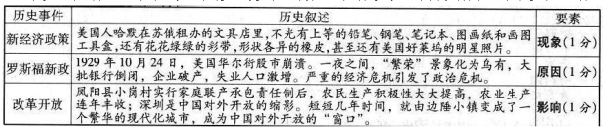 历史事件 历史叙述 要素
新经济政策 美国人哈默在苏俄租办的文具店里,不光有上等的铅笔、钢笔、笔记本、图画纸和画图 现象(1分)
工具盒,还有花花绿绿的彩带,形状各异的橡皮,甚至还有美国好莱坞的明星照片。
罗斯福新政 1929年10月24日,美国华尔街股市崩溃。一夜之间,“繁荣”景象化为乌有,大 原因(1分)
批银行倒闭,企业破产,失业人口激增。严重的经济危机引发了政治危机。
改革开放 凤阳县小岗村实行家庭联产承包责任制后,农民生产积极性大大提高,农业生产 影响(1分)
连年丰收;深圳是中国对外开放的缩影。短短几年时间,就由边陲小镇变成了一
个繁华的现代化城市,成为中国对外开放的“窗口”。